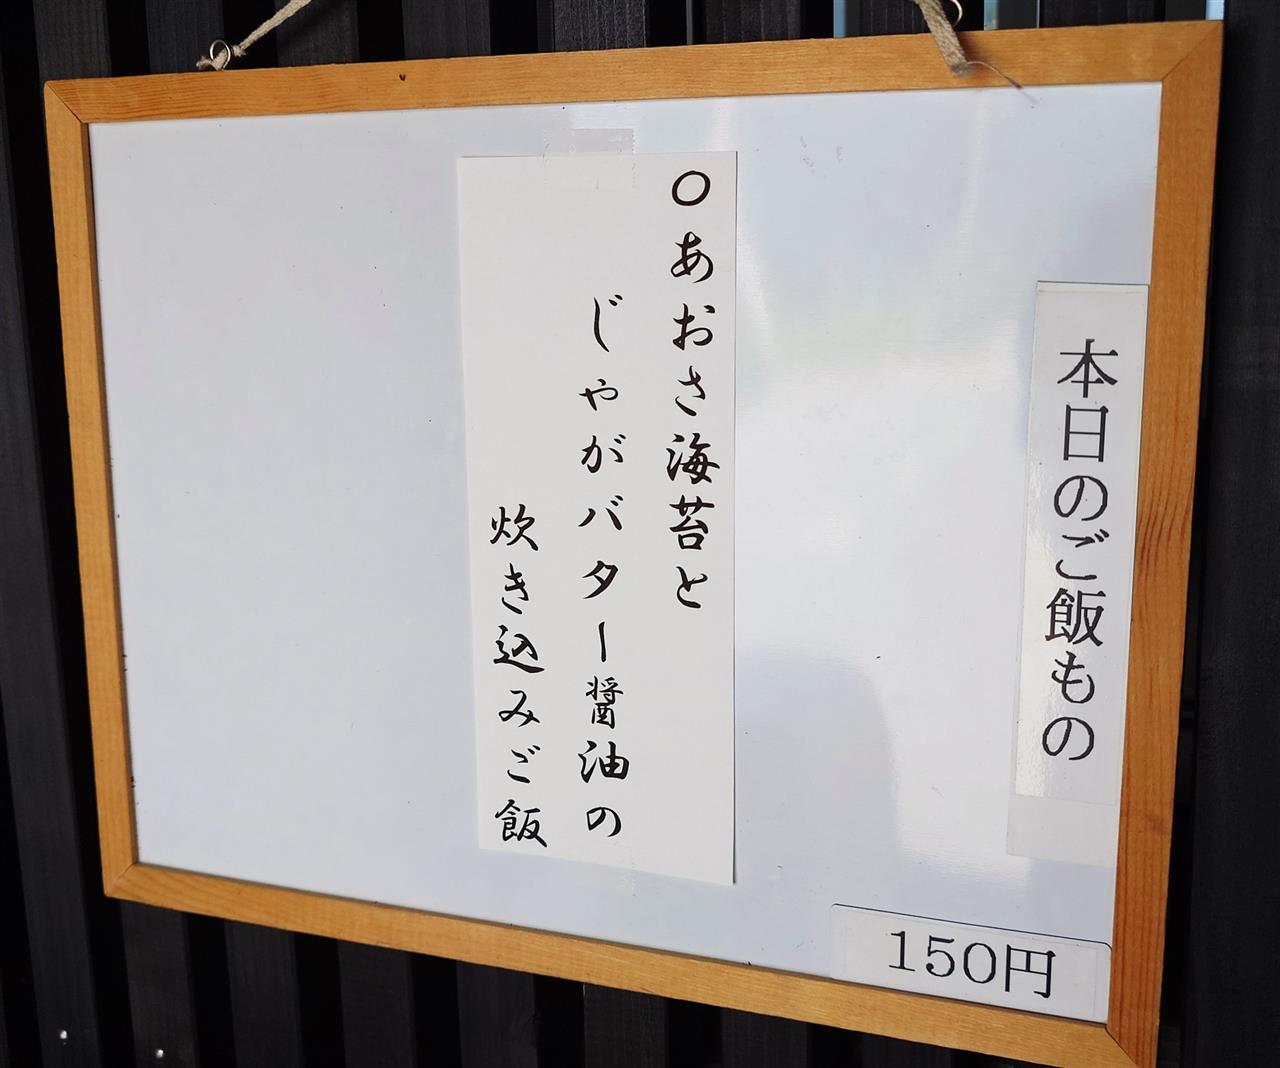 本日のご飯もの
〇あおさ海苔と
じゃがバター醤油の
炊き込みご飯
150円